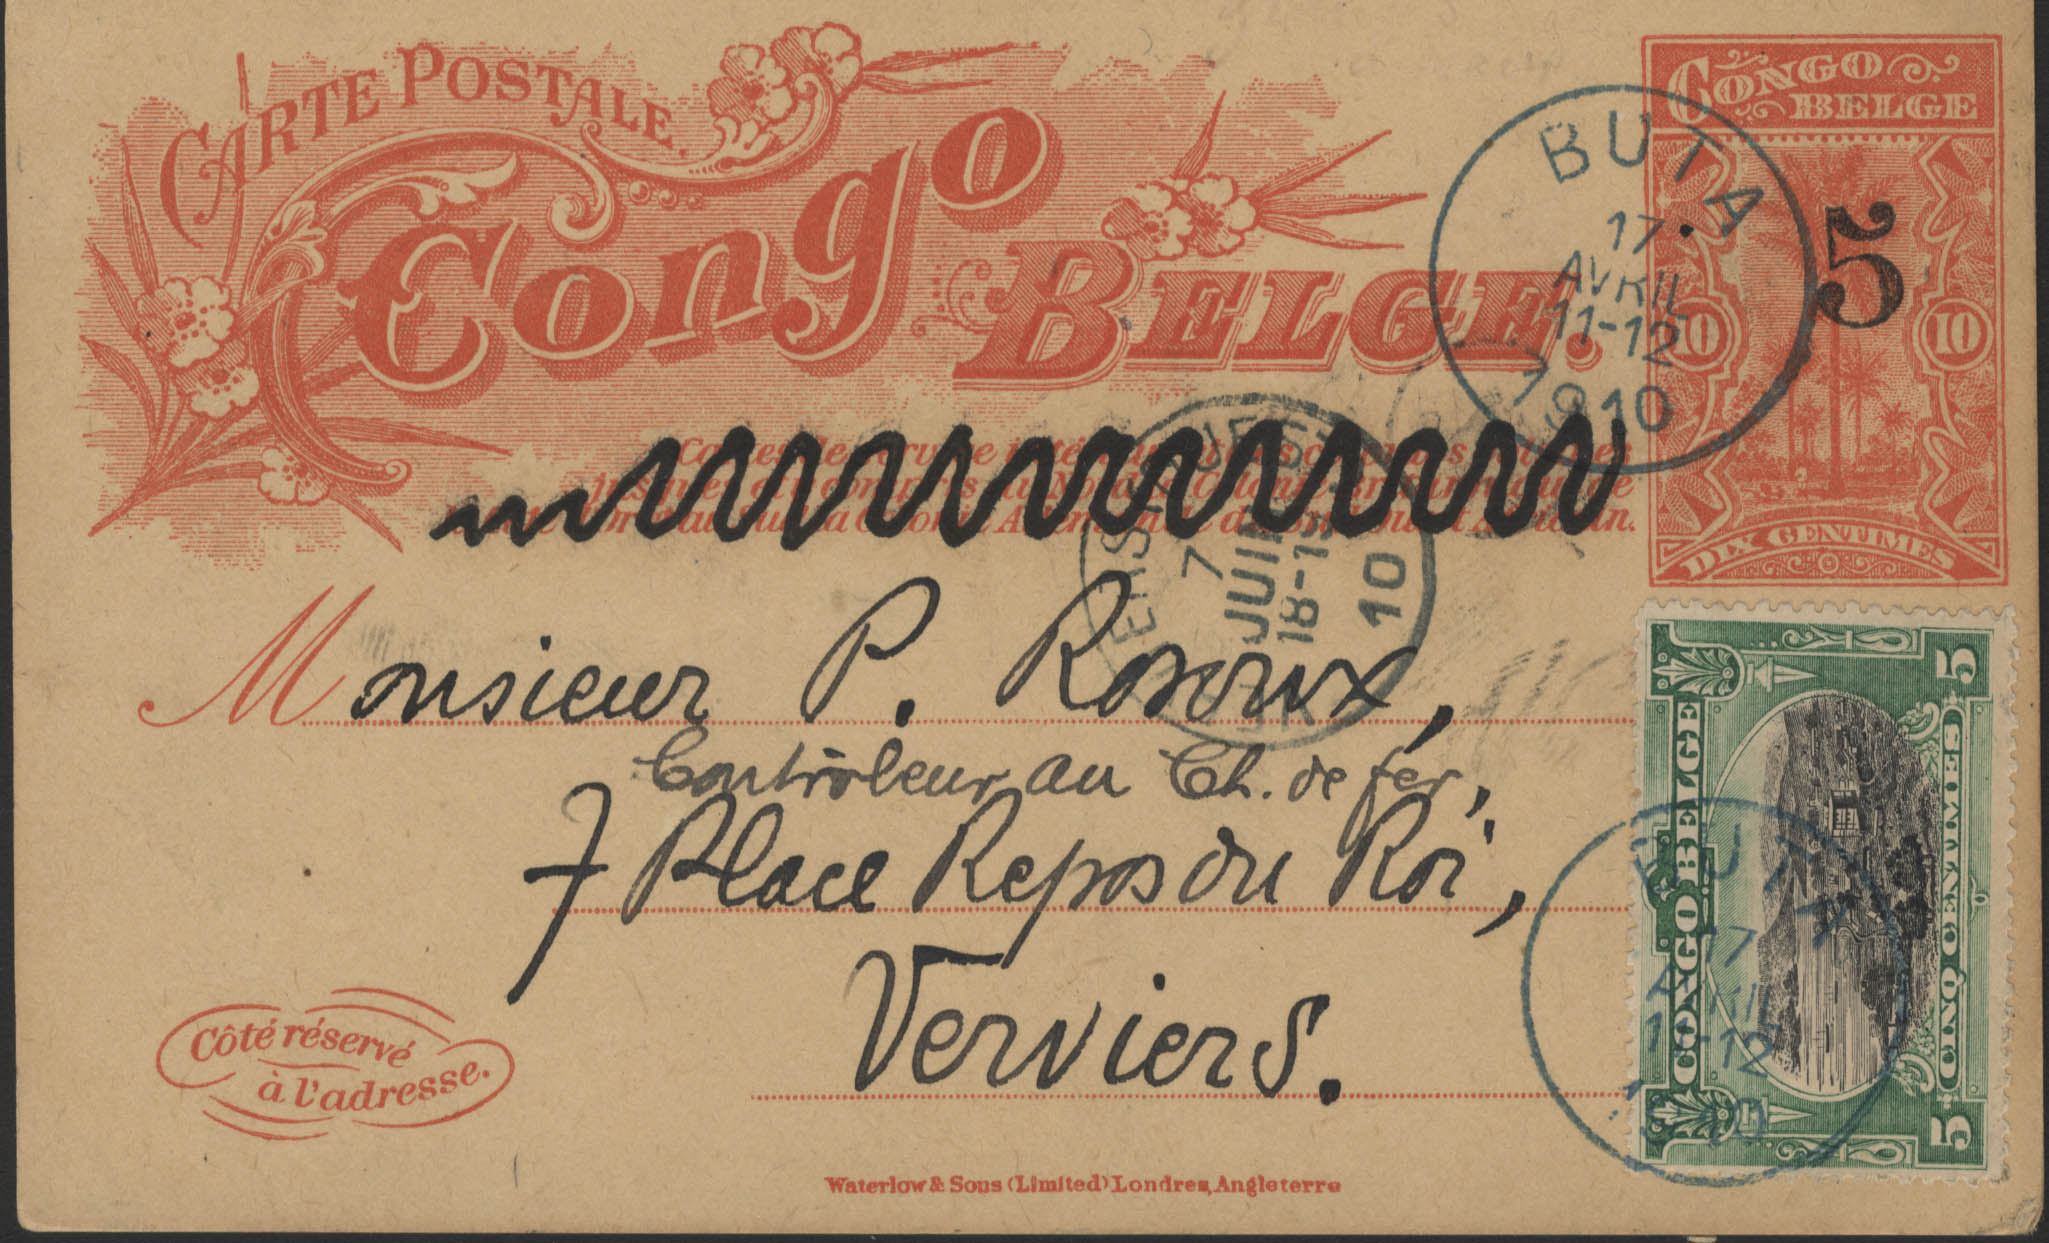 CARTE POSTALE.
Congo
BELGE.
CONGO
BELGE
10
10
5
DIX CENTIMES
BUTA
17
AVRIL
11-12
1910
7
JUIN
18-19
10
Monsieur P. Rosoux,
Contrôleur au Ch. de fer,
7 Place Repos du Roi,
Verviers.
Côté réservé
à l'adresse.
CONGO BELGE
5
5
CINQ CENTIMES
17
11-12
Waterlow & Sons (Limited) Londres, Angleterre